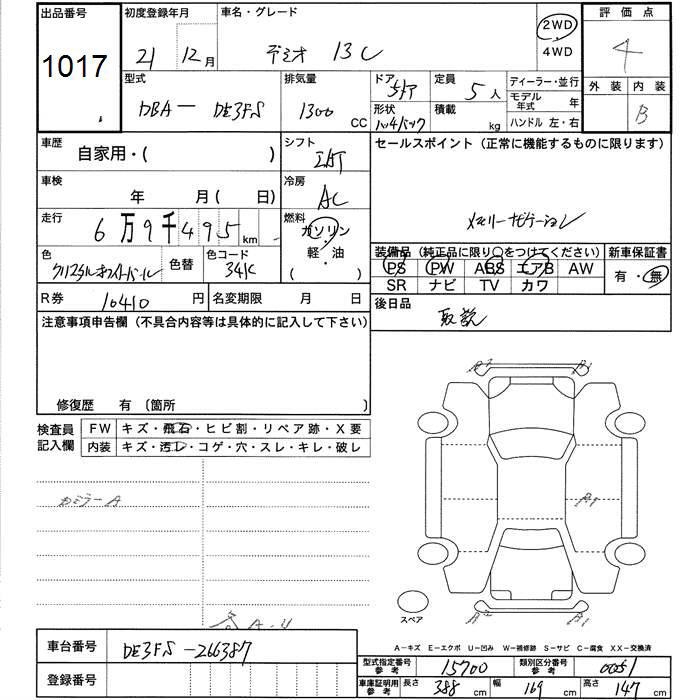 出品番号 初度登録年月 車名・グレード 2WD 評価点
1017 21 12月 デミオ 13C 4WD 4
型式 排気量 ドア 5ドア 定員 5人 ディーラー・並行 外装 内装
DBA－ DE3FS 1300 CC 形状 ハッチバック 積載 kg モデル年式 年 B
ハンドル 左・右
車歴 自家用・( ) シフト セールスポイント (正常に機能するものに限ります)
車検 年 月 ( 日) 冷房 AC
走行 6万9千495km 燃料 ガソリン メモリーナビゲーション
軽・油
( )
色 クリスタルホワイトパール 色替 色コード 34K 装備品 (純正品に限り○をつけてください) 新車保証書
PS PW ABS エアB AW 有・無
SR ナビ TV カワ
R券 10410 円 名変期限 月 日 後日品
注意事項申告欄 (不具合内容等は具体的に記入して下さい) 取説
修復歴 有 〔箇所 〕
検査員記入欄 FW キズ・飛石・ヒビ割・リペア跡・X要
内装 キズ・汚レ・コゲ・穴・スレ・キレ・破レ
ミラーA
スペア
A－キズ E－エクボ U－凹み W－補修跡 S－サビ C－腐食 XX－交換済
車台番号 DE3FS -266387
登録番号 型式指定番号 参考 15700 類別区分番号 参考 0051
車庫証明用 参考 長さ 388 cm 幅 169 cm 高さ 147 cm